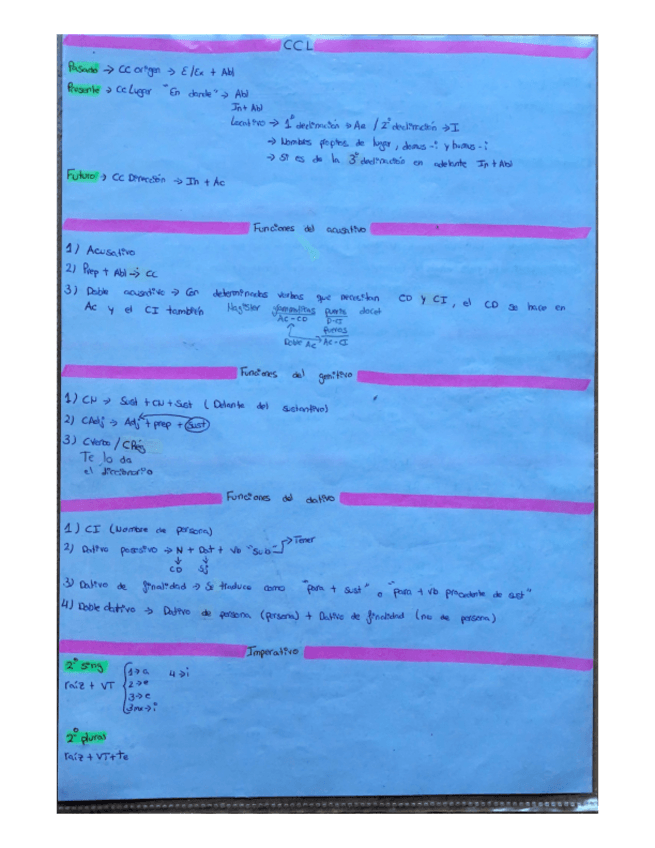 CCL
Pasado → CC origen → E/Ex + Abl
Presente → CC Lugar "En donde" → Abl
In + Abl
Locativo → 1º declinación → Ae / 2º declinación → I
→ Nombres propios de lugar, domus -i y humus -i
→ Si es de la 3º declinación en adelante In + Abl
Futuro → CC Dirección → In + Ac
Funciones del acusativo
1) Acusativo
2) Prep + Abl → CC
3) Doble acusativo → Con determinados verbos que necesitan CD y CI, el CD se hace en
Ac y el CI también Magister docet
AC-CD
Doble Ac AC-CI
Funciones del genitivo
1) CN → Sust + CN + Sust (Delante del sustantivo)
2) CAdj → Adj + prep + sust
3) CVerbo / CRég
Te lo da
el diccionario
Funciones del dativo
1) CI (Nombre de persona)
2) Dativo posesivo → N + Dat + Vb "Sub" → Tener
CD Sj
3) Dativo de finalidad → Se traduce como "para + sust" o "para + vb procedente de sust"
4) Doble dativo → Dativo de persona (persona) + Dativo de finalidad (no de persona)
Imperativo
2º sing
raíz + VT
1→a 4→i
2→e
3→e
3mx→i
2º plural
raíz + VT + te